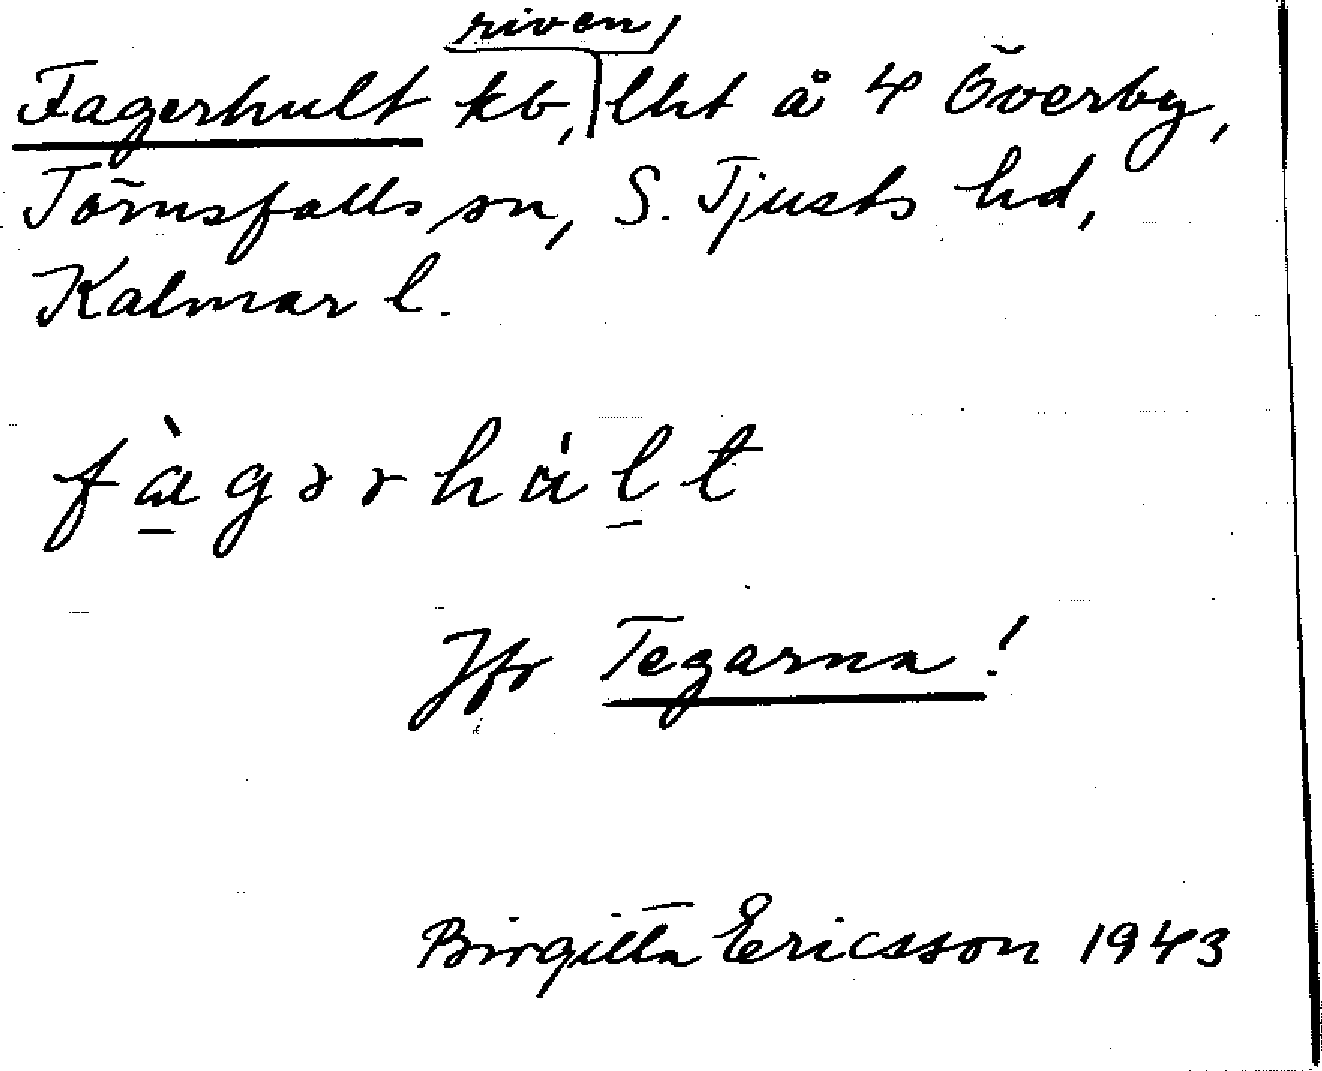 riven,
Fagerhult kb, lht å 4 Överby,
Törnsfalls sn, S. Tjusts hd,
Kalmar l.
fàgərhúlt
Jfr Tegarna!
Birgitta Ericsson 1943